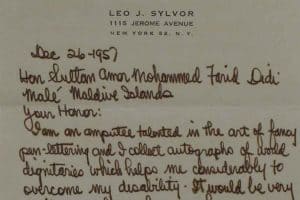 LEO J. SYLVOR
1115 JEROME AVENUE
NEW YORK 52, N.Y.
Dec 26-1957
Hon Sultan Amir Mohammed Farid Didi
Malé Maldive Islands
Your Honor:
I am an amputee talented in the art of fancy
pen-lettering and I collect autographs of world
dignitaries which helps me considerably to
overcome my disability. It would be very